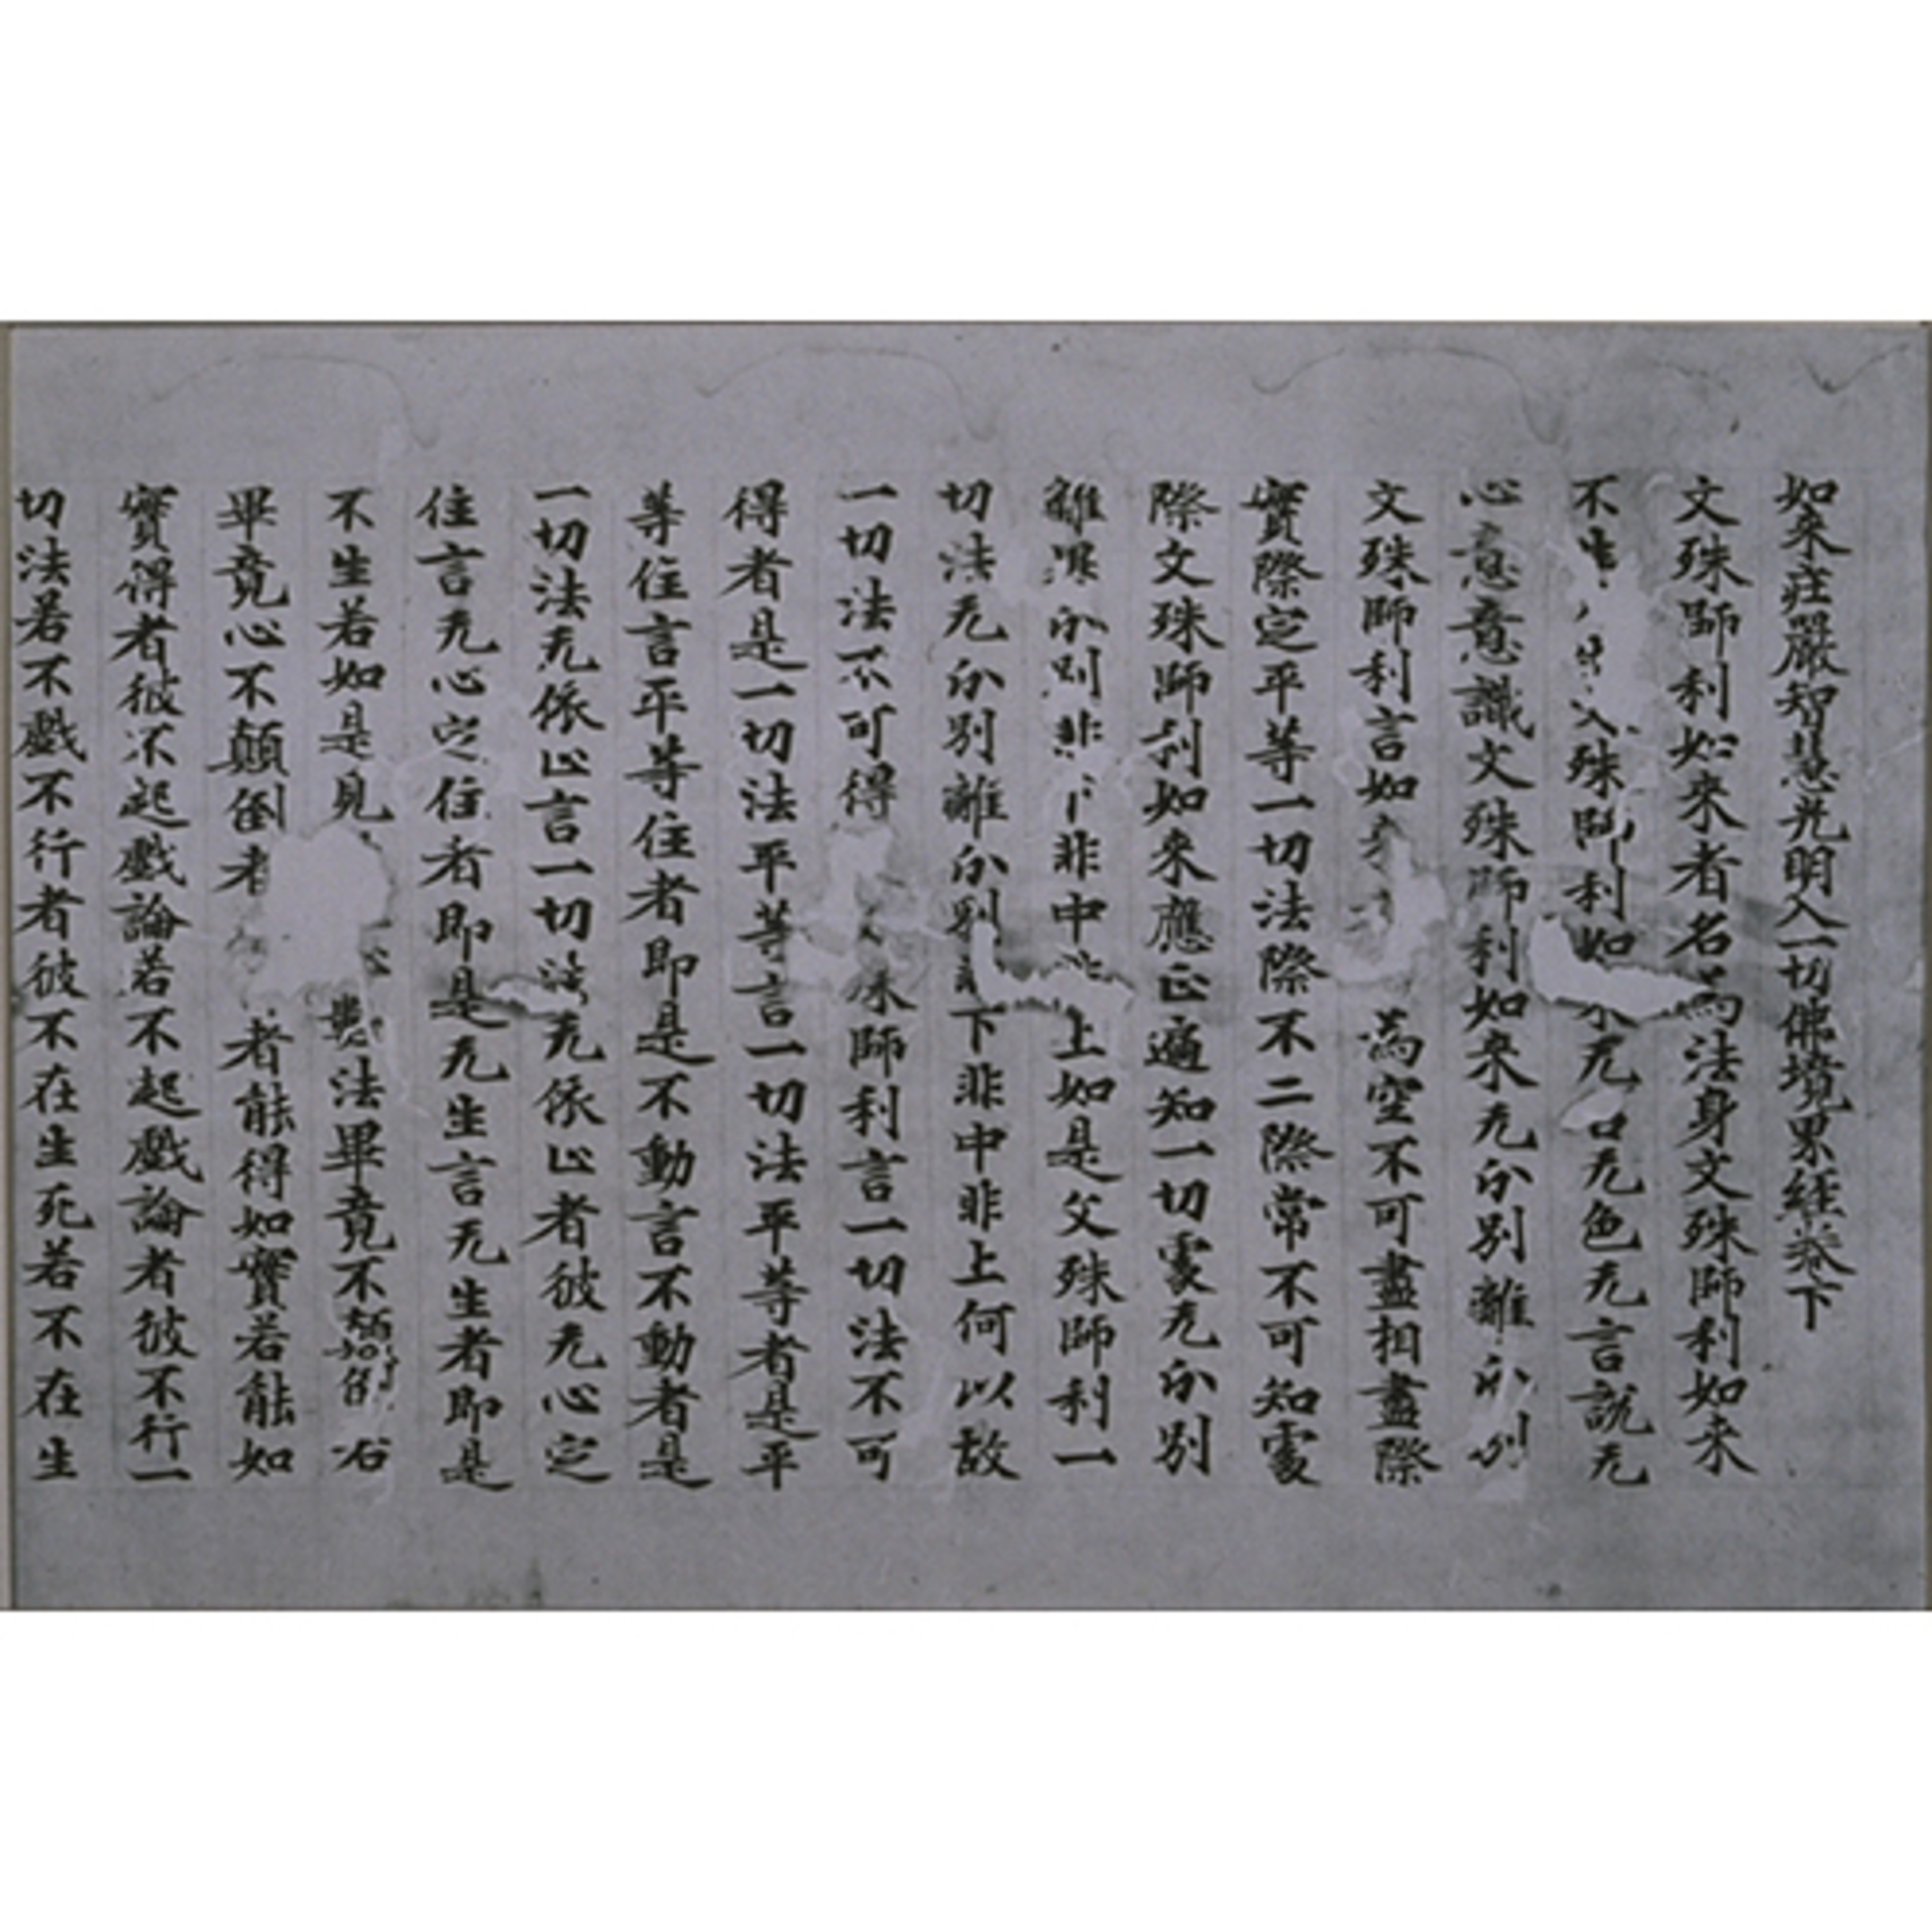 如来庄嚴智慧光明入一切佛境界経卷下
文殊師利如来者名為法身文殊師利如来
不生文殊師利如来无口无色无言説无
心意意識文殊師利如来无分別離分別
文殊師利言如為空不可盡相盡際
實際定平等一切法際不二際常不可知處
際文殊師利如来應正遍知一切處无分別
離分別非下非中非上如是文殊師利一
切法无分別離分別非下非中非上何以故
一切法不可得殊師利言一切法不可
得者是一切法平等言一切法平等者是平
等住言平等住者即是不動言不動者是
一切法无依止言一切法无依止者彼无心定
住言无心定住者即是无生言无生者即是
不生若如是見心數法畢竟不顛倒若
畢竟心不顛倒者者能得如實若能如
實得者彼不起戲論若不起戲論者彼不行一
切法若不戲不行者彼不在生死若不在生